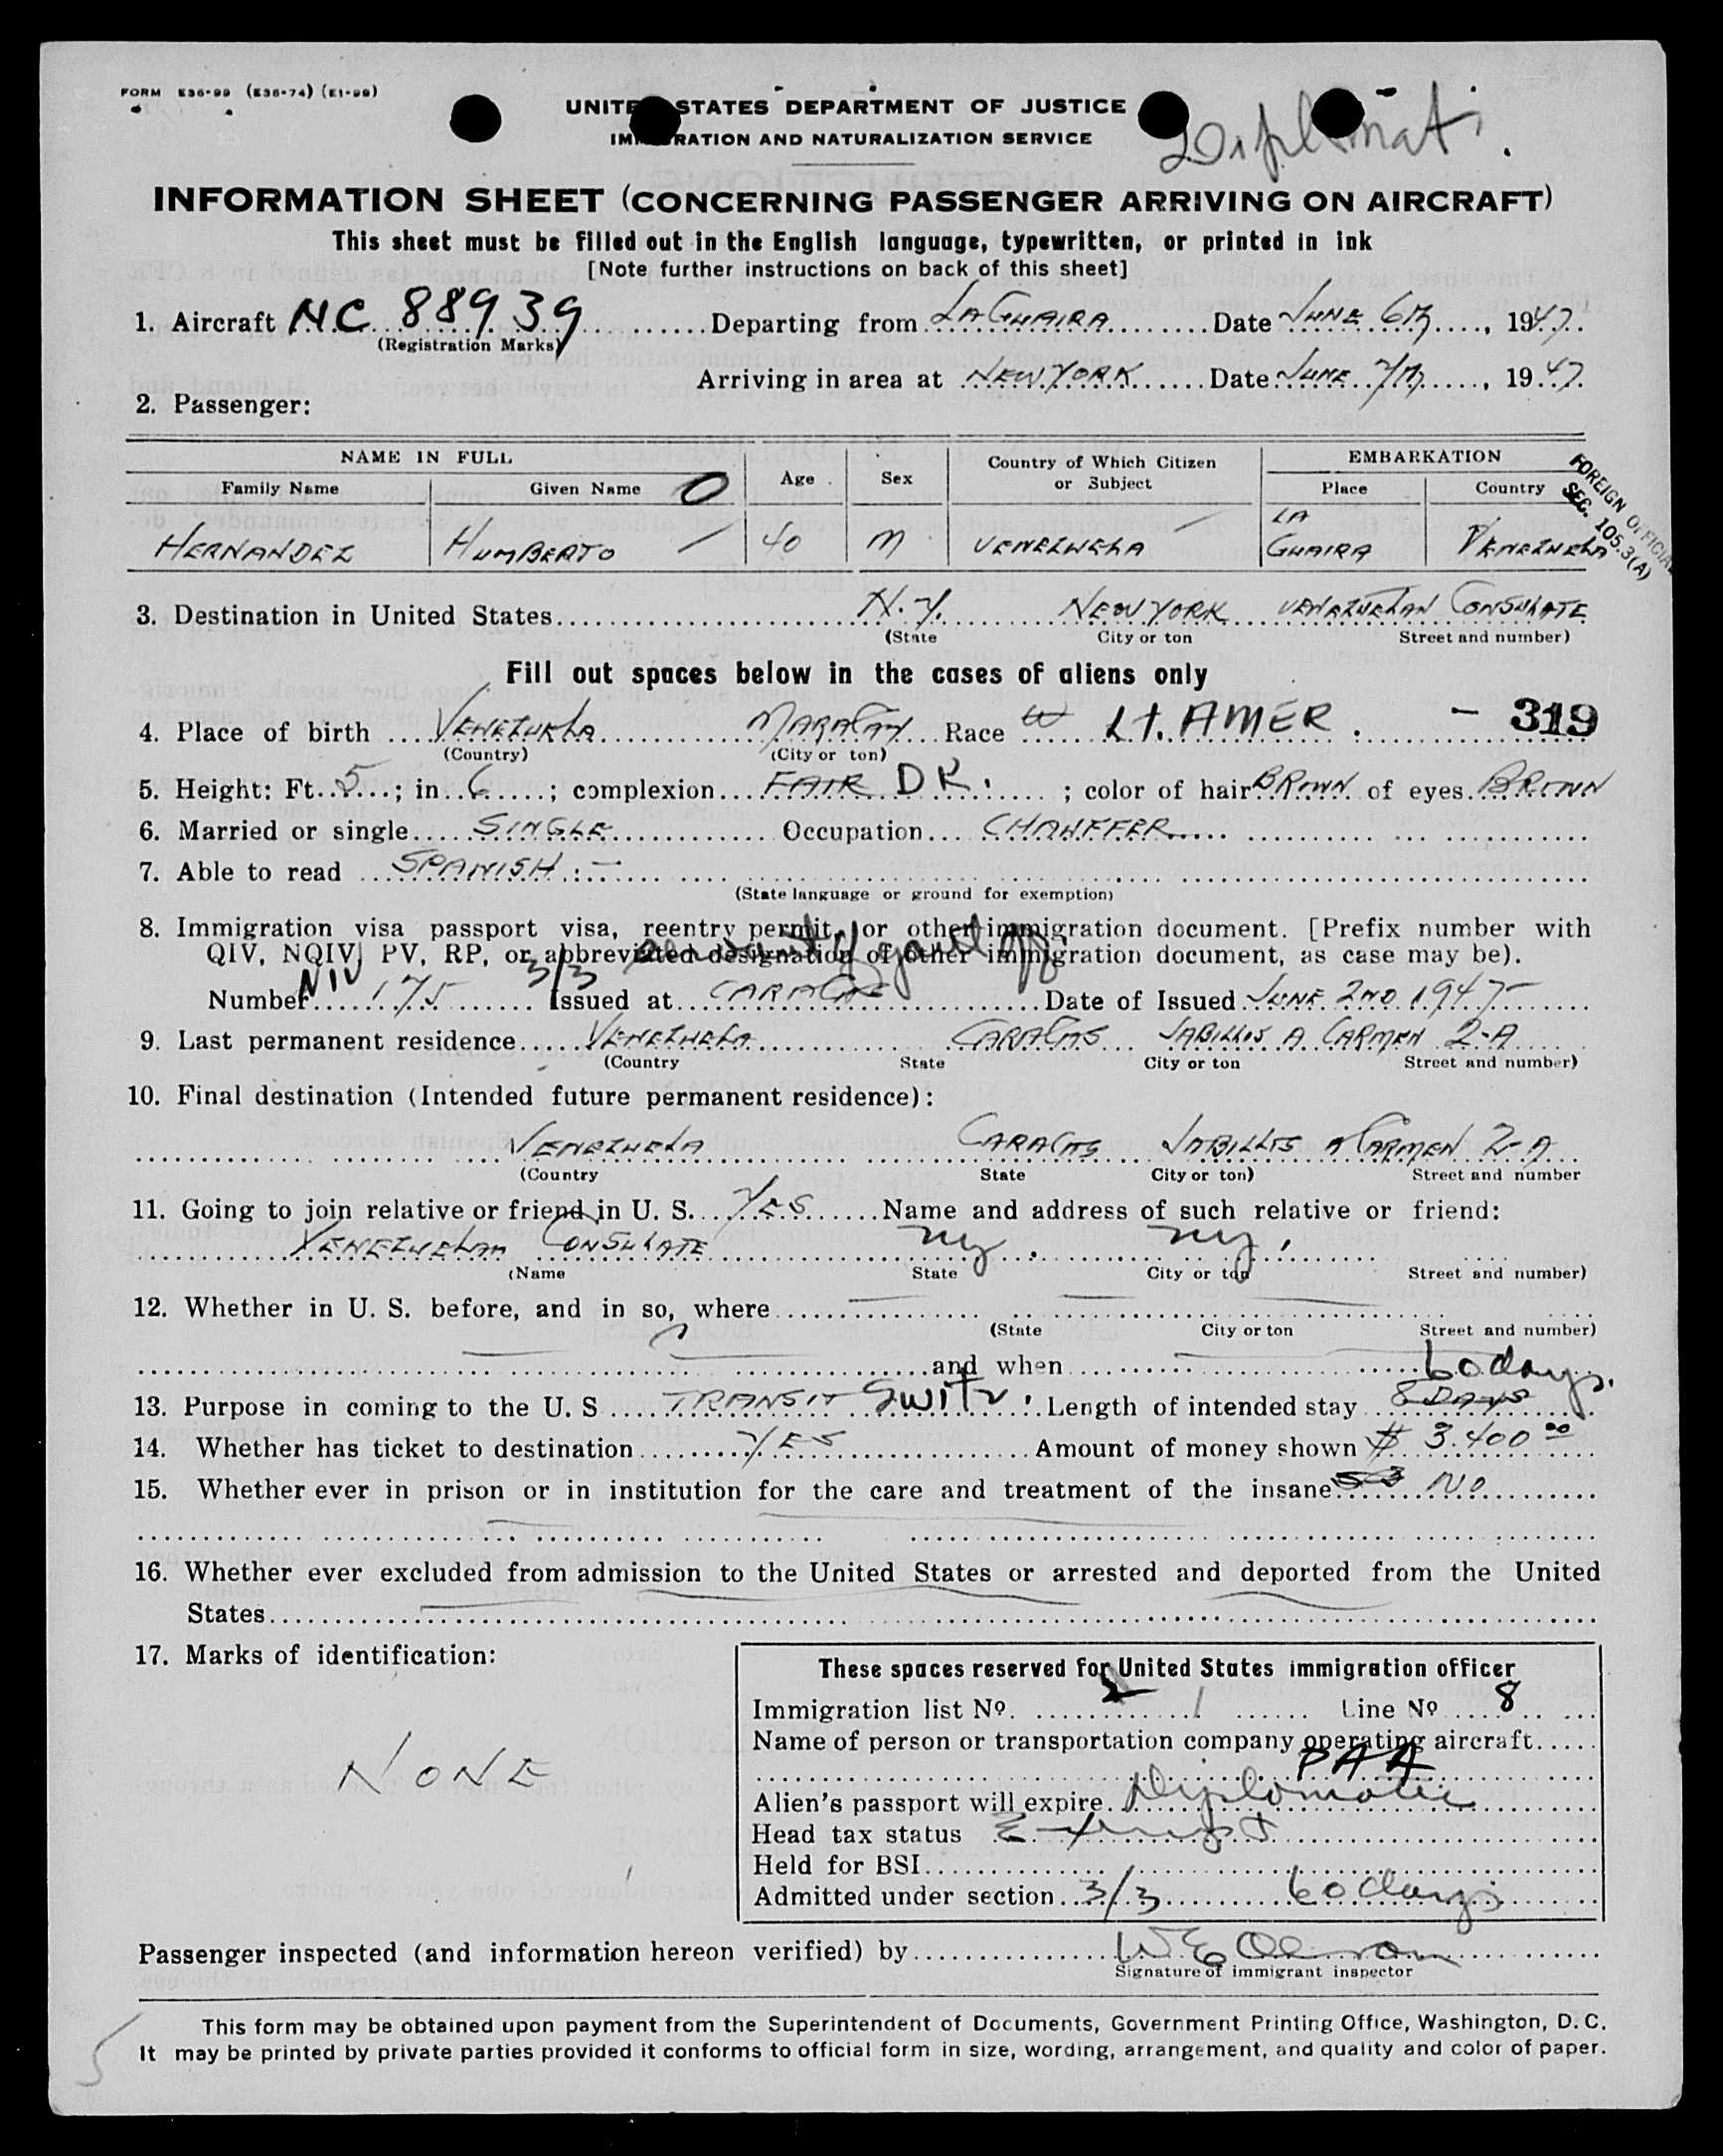 FORM E36-99 (E36-74) (E1-99)
UNITE STATES DEPARTMENT OF JUSTICE
IM RATION AND NATURALIZATION SERVICE
Diplomat.
INFORMATION SHEET (CONCERNING PASSENGER ARRIVING ON AIRCRAFT)
This sheet must be filled out in the English language, typewritten, or printed in ink
[Note further instructions on back of this sheet]
1. Aircraft NC 88939 Departing from LA GUAIRA Date JUNE 6th, 1947.
(Registration Marks)
Arriving in area at NEW YORK Date JUNE 7th, 1947.
2. Passenger:
NAME IN FULL Age Sex Country of Which Citizen or Subject EMBARKATION
Family Name Given Name O Place Country
FOREIGN OFFICIAL
SEC. 105.3(A)
HERNANDEZ HUMBERTO 40 M VENEZUELA LA GUAIRA VENEZUELA
3. Destination in United States N.Y. NEW YORK VENEZUELAN CONSULATE
(State City or ton Street and number)
Fill out spaces below in the cases of aliens only
4. Place of birth VENEZUELA MARACAY Race W LT. AMER. - 319
(Country) (City or ton)
5. Height: Ft. 5; in. 6; complexion FAIR DK.; color of hair BROWN of eyes BROWN
6. Married or single SINGLE Occupation CHAUFFER
7. Able to read SPANISH.-
(State language or ground for exemption)
8. Immigration visa passport visa, reentry permit, or other immigration document. [Prefix number with
QIV, NQIV, PV, RP, or abbreviated designation of other immigration document, as case may be).
3/3 servant of
Number NIV 175 Issued at CARACAS Date of Issued JUNE 2ND 1947
9. Last permanent residence VENEZUELA CARACAS JABILLOS A CARMEN 2-A
(Country State City or ton Street and number)
10. Final destination (Intended future permanent residence):
VENEZUELA CARACAS JABILLOS A CARMEN 2-A
(Country State City or ton) Street and number
11. Going to join relative or friend in U. S. YES Name and address of such relative or friend:
VENEZUELAN CONSULATE NY. NY.
(Name State City or ton Street and number)
12. Whether in U. S. before, and in so, where
(State City or ton Street and number)
and when
60 days.
13. Purpose in coming to the U. S TRANSIT Switz. Length of intended stay 8 DAYS
14. Whether has ticket to destination YES Amount of money shown $ 3.400 00
15. Whether ever in prison or in institution for the care and treatment of the insane NO
16. Whether ever excluded from admission to the United States or arrested and deported from the United
States
17. Marks of identification:
NONE
These spaces reserved for United States immigration officer
Immigration list No. 2 1 Line No 8
Name of person or transportation company operating aircraft
PAA
Alien's passport will expire Diplomatic
Head tax status Exempt
Held for BSI
Admitted under section 3/3 60 days
Passenger inspected (and information hereon verified) by
Signature of immigrant inspector
This form may be obtained upon payment from the Superintendent of Documents, Government Printing Office, Washington, D. C.
It may be printed by private parties provided it conforms to official form in size, wording, arrangement, and quality and color of paper.
5